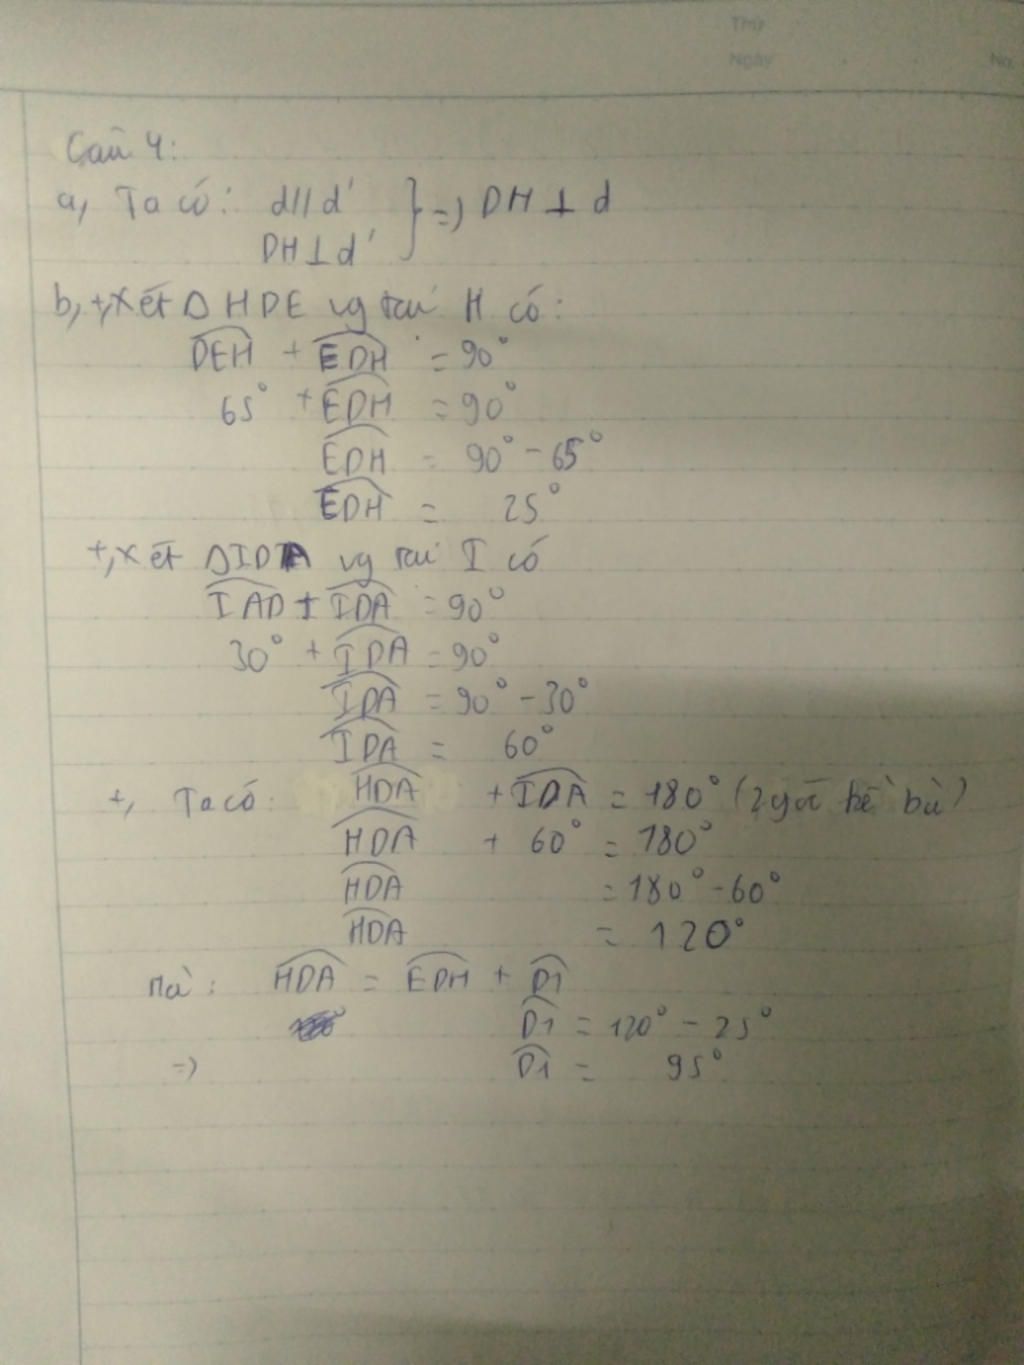 Thứ
Ngày No.
Câu 4:
a, Ta có: d//d' } => DH ⊥ d
DH ⊥ d'
b, +, xét Δ HDE vg tại H có:
DEH + EDH = 90°
65° + EDH = 90°
EDH = 90° - 65°
EDH = 25°
+, xét ΔIDA vg tại I có
IAD + IDA = 90°
30° + IDA = 90°
IDA = 90° - 30°
IDA = 60°
+, Ta có: HDA + IDA = 180° (2 góc kề bù)
HDA + 60° = 180°
HDA = 180° - 60°
HDA = 120°
Mà: HDA = EDH + D1
D1 = 120° - 25°
=) D1 = 95°